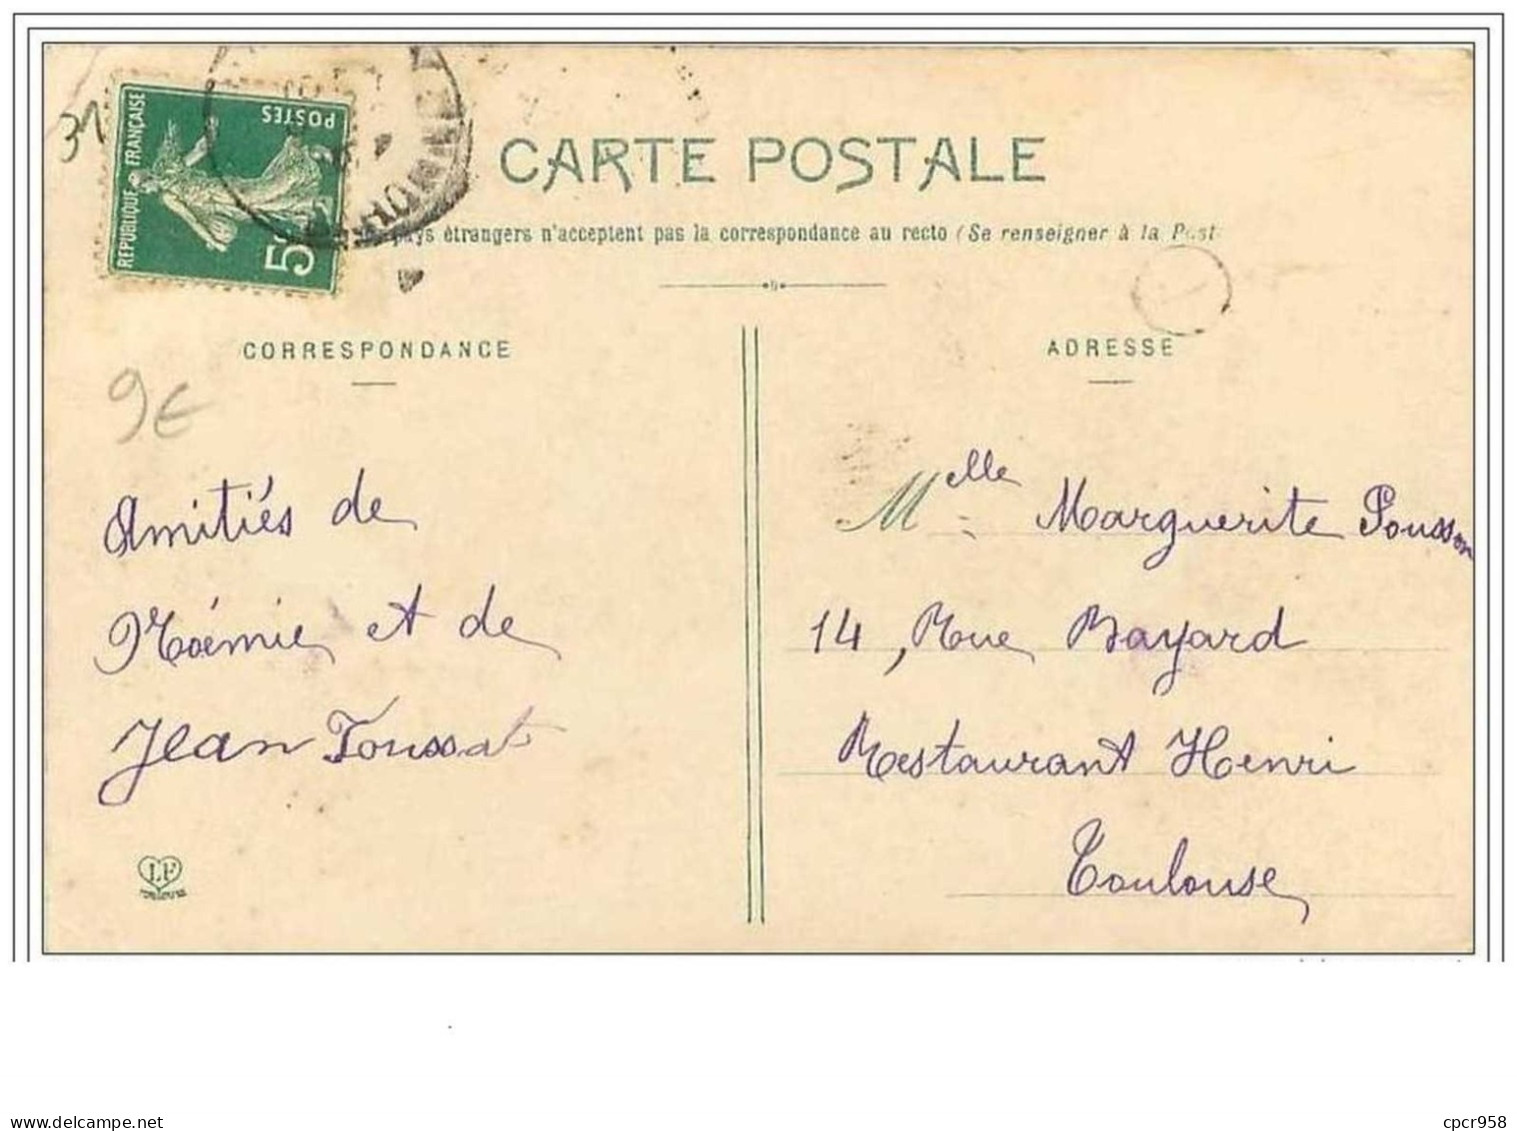 31
RÉPUBLIQUE FRANÇAISE
POSTES
5c
CARTE POSTALE
pays étrangers n'acceptent pas la correspondance au recto (Se renseigner à la Post
CORRESPONDANCE
9€
Amitiés de
Noémie et de
Jean Toussat
LF
TOULOUSE
ADRESSE
Melle Marguerite Pousson
14, Rue Bayard
Restaurant Henri
Toulouse
delcampe.net
cpcr958